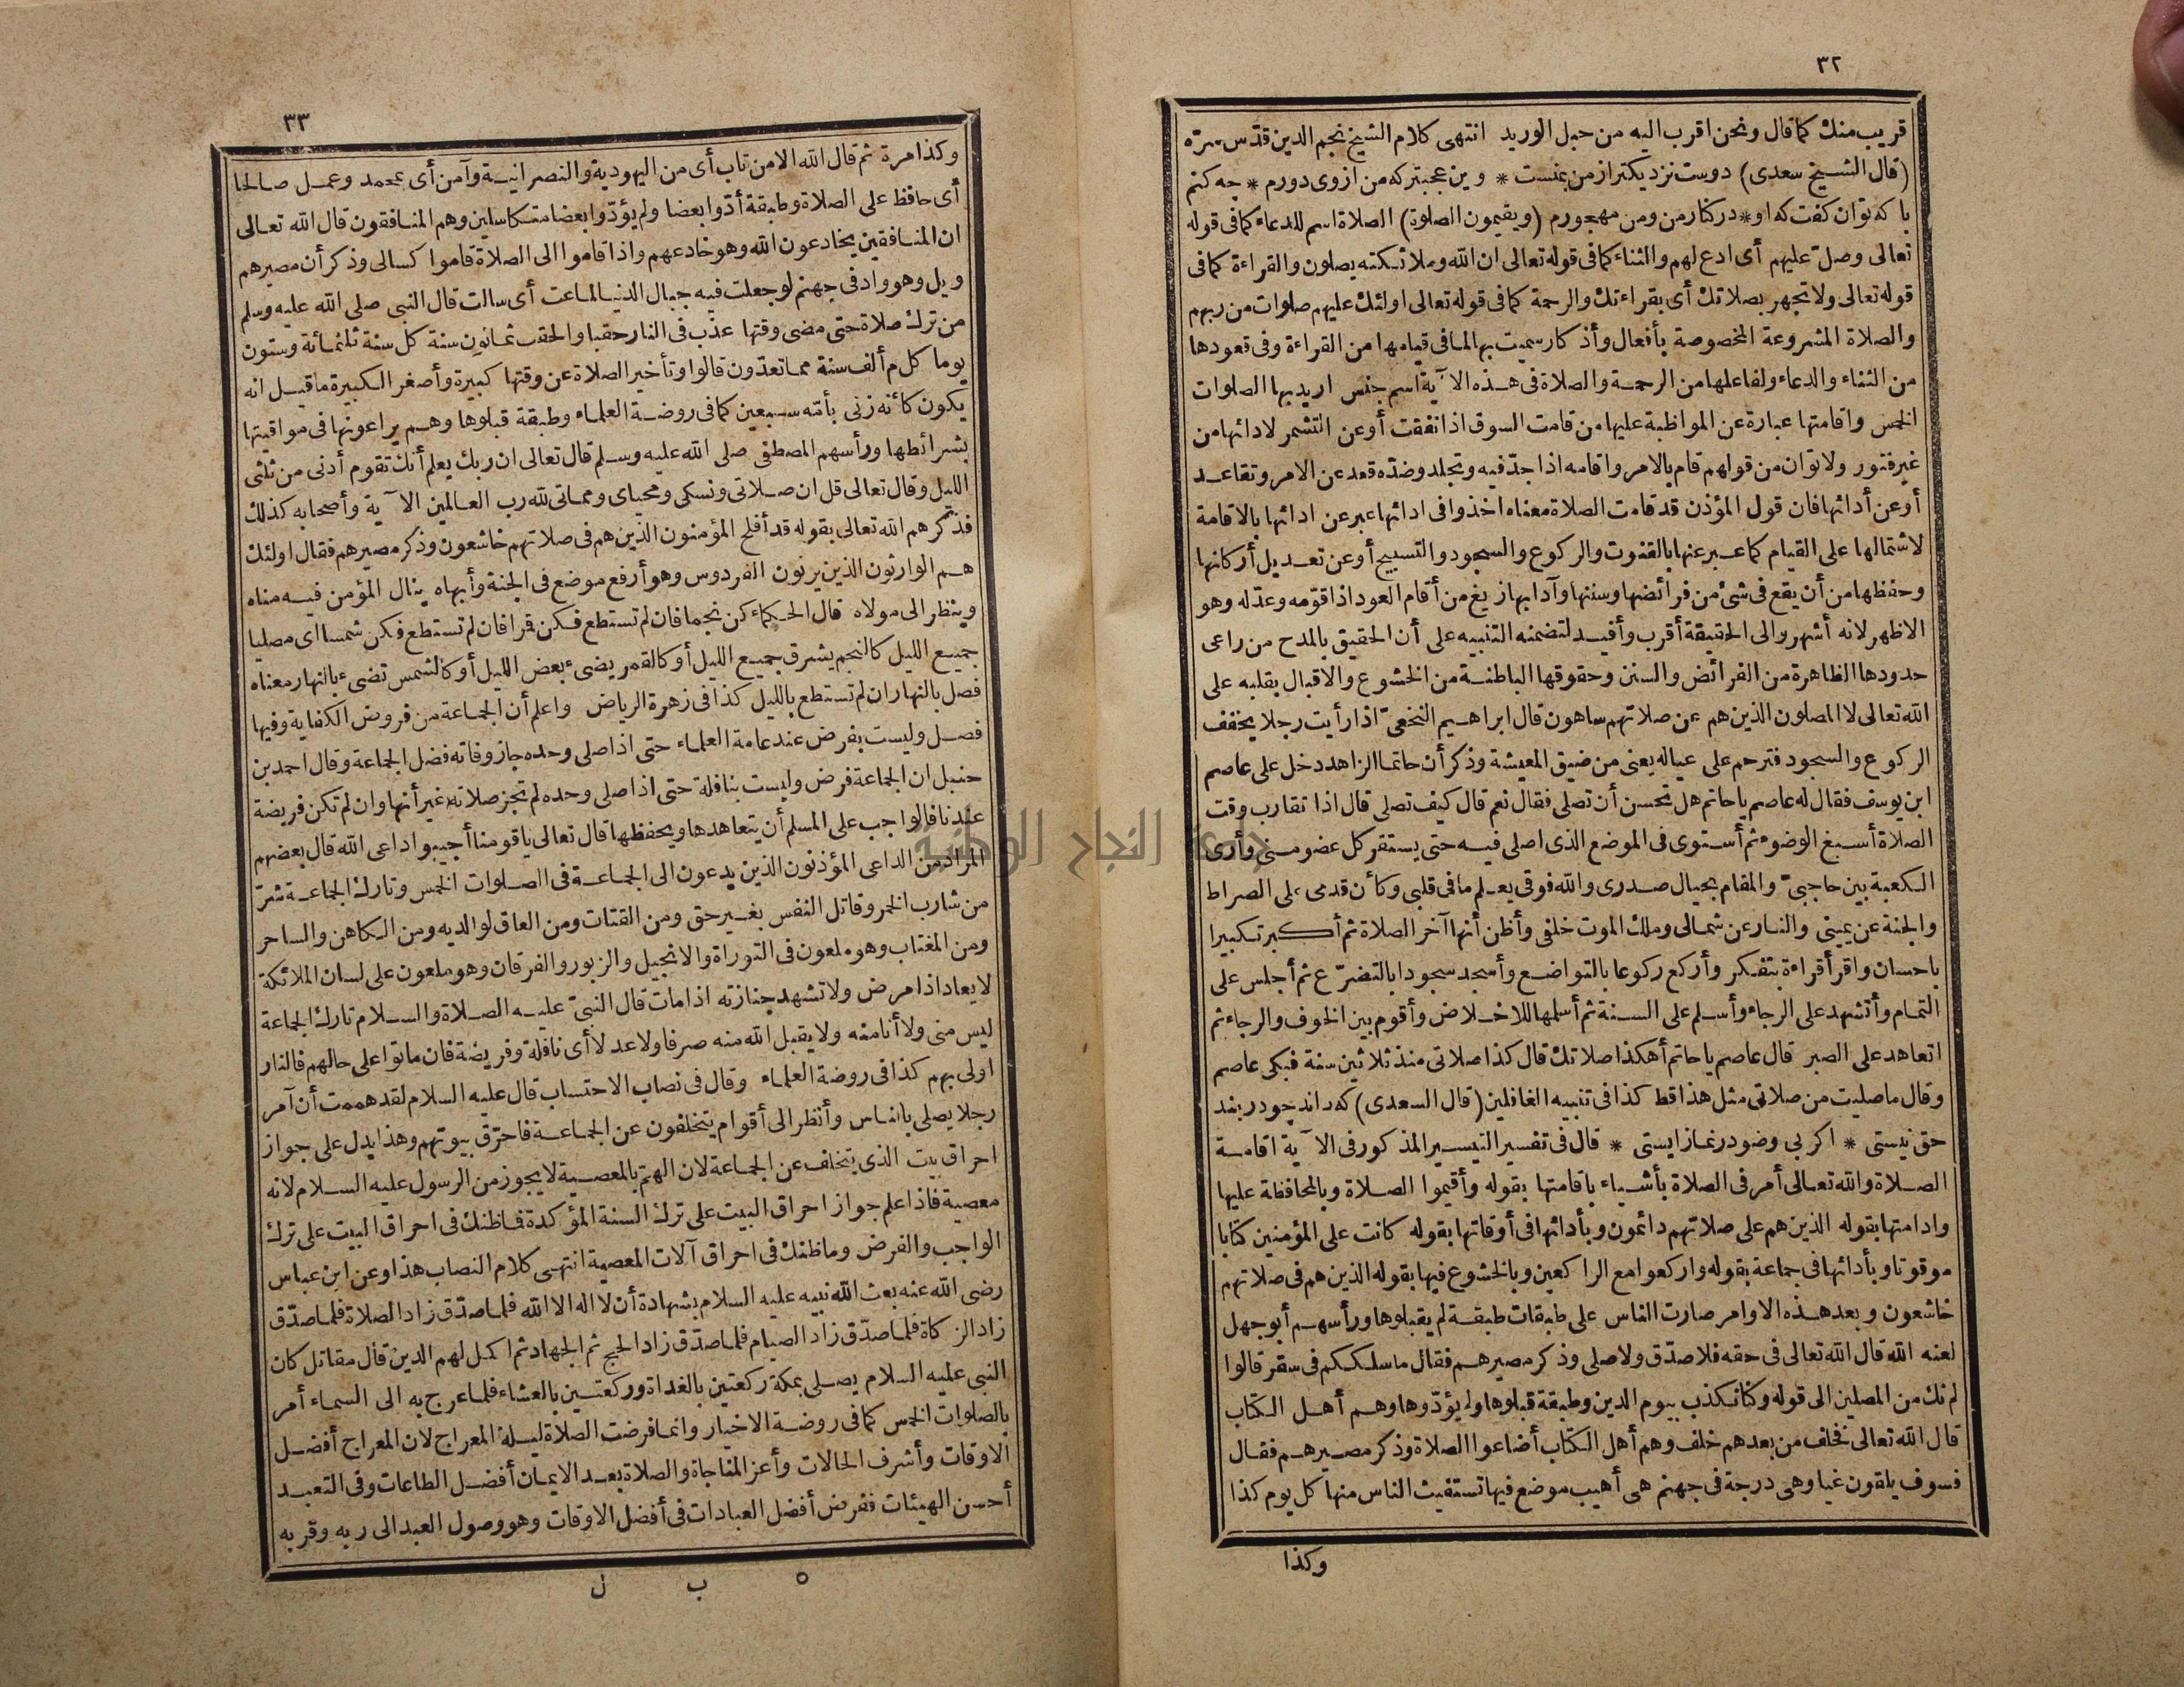 ٣٢
قريب منك كما قال ونحن اقرب اليه من حبل الوريد انتهى كلام الشيخ نجم الدين قدّس سرّه
(قال الشيخ سعدى) دوست نزديكتر از من بمنست * وين عجبتر كه من ازوى دورم * چه كنم
با كه توان كفت كه او * در كنار من ومن مهجورم (ويقيمون الصلوة) الصلاة اسم للدعاء كما فى قوله
تعالى وصلّ عليهم أى ادع لهم والثناء كما فى قوله تعالى ان الله وملائكته يصلون والقراءة كما فى
قوله تعالى ولا تجهر بصلاتك أى بقراءتك والرحمة كما فى قوله تعالى اولئك عليهم صلوات من ربهم
والصلاة المشروعة المخصوصة بأفعال وأذكار سميت بها لما فى قيامها من القراءة وفى قعودها
من الثناء والدعاء ولفاعلها من الرحمة والصلاة فى هذه الآية اسم جنس اريد بها الصلوات
الخمس واقامتها عبارة عن المواظبة عليها من قامت السوق اذا نفقت أو عن التشمر لادائها من
غير فتور ولا توان من قولهم قام بالامر واقامه اذا جدّ فيه وتجلد وضدّه قعد عن الامر وتقاعد
أو عن أدائها فان قول المؤذن قد قامت الصلاة معناه اخذوا فى ادائها عبر عن ادائها بالاقامة
لاشتمالها على القيام كما عبر عنها بالقنوت والركوع والسجود والتسبيح أو عن تعديل أركانها
وحفظها من أن يقع فى شئ من فرائضها وسننها وآدابها زيغ من أقام العود اذا قوّمه وعدّله وهو
الاظهر لانه أشهر والى الحقيقة أقرب وأفيد لتضمنه التنبيه على أن الحقيق بالمدح من راعى
حدودها الظاهرة من الفرائض والسنن وحقوقها الباطنة من الخشوع والاقبال بقلبه على
الله تعالى لا المصلون الذين هم عن صلاتهم ساهون قال ابراهيم النخعىّ اذا رأيت رجلا يخفف
الركوع والسجود فترحم على عياله يعنى من ضيق المعيشة وذكر أن حاتما الزاهد دخل على عاصم
ابن يوسف فقال له عاصم يا حاتم هل تحسن أن تصلى فقال نعم قال كيف تصلى قال اذا تقارب وقت
الصلاة أسبغ الوضوء ثم أستوى فى الموضع الذى اصلى فيه حتى يستقر كل عضو منى وأرى
الكعبة بين حاجبىّ والمقام بحيال صدرى والله فوقى يعلم ما فى قلبى وكأن قدمى على الصراط
والجنة عن يمينى والنار عن شمالى وملك الموت خلفى وأظن أنها آخر الصلاة ثم أكبر تكبيرا
باحسان واقرأ قراءة بتفكر وأركع ركوعا بالتواضع وأسجد سجودا بالتضرّع ثم أجلس على
التمام وأتشهد على الرجاء وأسلم على السنة ثم أسلمها للاخلاص وأقوم بين الخوف والرجاء ثم
اتعاهد على الصبر قال عاصم يا حاتم أهكذا صلاتك قال كذا صلاتى منذ ثلاثين سنة فبكى عاصم
وقال ما صليت من صلاتى مثل هذا قط كذا فى تنبيه الغافلين (قال السعدى) كه داند چو در بند
حق نيستى * اكر بى وضو در نماز ايستى * قال فى تفسير التيسير المذكور فى الآية اقامة
الصلاة والله تعالى أمر فى الصلاة بأشياء باقامتها بقوله وأقيموا الصلاة وبالمحافظة عليها
وادامتها بقوله الذين هم على صلاتهم دائمون وبأدائها فى أوقاتها بقوله كانت على المؤمنين كتابا
موقوتا وبأدائها فى جماعة بقوله واركعوا مع الراكعين وبالخشوع فيها بقوله الذين هم فى صلاتهم
خاشعون وبعد هذه الاوامر صارت الناس على طبقات طبقة لم يقبلوها ورأسهم أبو جهل
لعنه الله قال الله تعالى فى حقه فلا صدّق ولا صلى وذكر مصيرهم فقال ما سلككم فى سقر قالوا
لم نك من المصلين الى قوله وكنا نكذب بيوم الدين وطبقة قبلوها ولم يؤدّوها وهم أهل الكتاب
قال الله تعالى فخلف من بعدهم خلف وهم أهل الكتاب أضاعوا الصلاة وذكر مصيرهم فقال
فسوف يلقون غيا وهى درجة فى جهنم هى أهيب موضع فيها تستغيث الناس منها كل يوم كذا
وكذا
٣٣
وكذا مرة ثم قال الله الا من تاب أى من اليهودية والنصرانية وآمن أى بمحمد وعمل صالحا
أى حافظ على الصلاة وطبقة أدّوا بعضا ولم يؤدّوا بعضا متكاسلين وهم المنافقون قال الله تعالى
ان المنافقين يخادعون الله وهو خادعهم واذا قاموا الى الصلاة قاموا كسالى وذكر أن مصيرهم
ويل وهو واد فى جهنم لو جعلت فيه جبال الدنيا لماعت أى سالت قال النبى صلى الله عليه وسلم
من ترك صلاة حتى مضى وقتها عذّب فى النار حقبا والحقب ثمانون سنة كل سنة ثلثمائة وستون
يوما كل يوم ألف سنة مما تعدّون قالوا وتأخير الصلاة عن وقتها كبيرة وأصغر الكبيرة ما قيل انه
يكون كأنه زنى بأمّه سبعين كما فى روضة العلماء وطبقة قبلوها وهم يراعونها فى مواقيتها
بشرائطها ورأسهم المصطفى صلى الله عليه وسلم قال تعالى ان ربك يعلم أنك تقوم أدنى من ثلثى
الليل وقال تعالى قل ان صلاتى ونسكى ومحياى ومماتى لله رب العالمين الآية وأصحابه كذلك
فذكرهم الله تعالى بقوله قد أفلح المؤمنون الذين هم فى صلاتهم خاشعون وذكر مصيرهم فقال اولئك
هم الوارثون الذين يرثون الفردوس وهو أرفع موضع فى الجنة وأبهاه ينال المؤمن فيه مناه
وينظر الى مولاه قال الحكماء كن نجما فان لم تستطع فكن قمرا فان لم تستطع فكن شمسا اى مصليا
جميع الليل كالنجم يشرق جميع الليل أو كالقمر يضىء بعض الليل أو كالشمس تضىء بالنهار معناه
فصل بالنهار ان لم تستطع بالليل كذا فى زهرة الرياض واعلم أن الجماعة من فروض الكفاية وفيها
فضل وليست بفرض عند عامة العلماء حتى اذا صلى وحده جاز وفاته فضل الجماعة وقال احمد بن
حنبل ان الجماعة فرض وليست بنافلة حتى اذا صلى وحده لم تجز صلاته غير أنها وان لم تكن فريضة
عندنا فالواجب على المسلم أن يتعاهدها ويحفظها قال تعالى يا قومنا أجيبوا داعى الله قال بعضهم
المراد من الداعى المؤذنون الذين يدعون الى الجماعة فى الصلوات الخمس وتارك الجماعة شرّ
من شارب الخمر وقاتل النفس بغير حق ومن القتات ومن العاق لوالديه ومن الكاهن والساحر
ومن المغتاب وهو ملعون فى التوراة والانجيل والزبور والفرقان وهو ملعون على لسان الملائكة
لا يعاد اذا مرض ولا تشهد جنازته اذا مات قال النبىّ عليه الصلاة والسلام تارك الجماعة
ليس منى ولا أنا منه ولا يقبل الله منه صرفا ولا عدلا أى نافلة وفريضة فان ماتوا على حالهم فالنار
اولى بهم كذا فى روضة العلماء وقال فى نصاب الاحتساب قال عليه السلام لقد هممت أن آمر
رجلا يصلى بالناس وأنظر الى أقوام يتخلفون عن الجماعة فاحرّق بيوتهم وهذا يدل على جواز
احراق بيت الذى يتخلف عن الجماعة لان الهمّ بالمعصية لا يجوز من الرسول عليه السلام لانه
معصية فاذا علم جواز احراق البيت على ترك السنة المؤكدة فما ظنك فى احراق البيت على ترك
الواجب والفرض وما ظنك فى احراق آلات المعصية انتهى كلام النصاب هذا وعن ابن عباس
رضى الله عنه بعث الله نبيه عليه السلام بشهادة أن لا اله الا الله فلما صدّق زاد الصلاة فلما صدّق
زاد الزكاة فلما صدّق زاد الصيام فلما صدّق زاد الحج ثم الجهاد ثم اكمل لهم الدين قال مقاتل كان
النبى عليه السلام يصلى بمكة ركعتين بالغداة وركعتين بالعشاء فلما عرج به الى السماء أمر
بالصلوات الخمس كما فى روضة الاخيار وانما فرضت الصلاة ليلة المعراج لان المعراج أفضل
الاوقات وأشرف الحالات وأعز المناجاة والصلاة بعد الايمان أفضل الطاعات وفى التعبد
أحسن الهيئات ففرض أفضل العبادات فى أفضل الاوقات وهو وصول العبد الى ربه وقربه
٥ ب ل
النجاح الوطنية